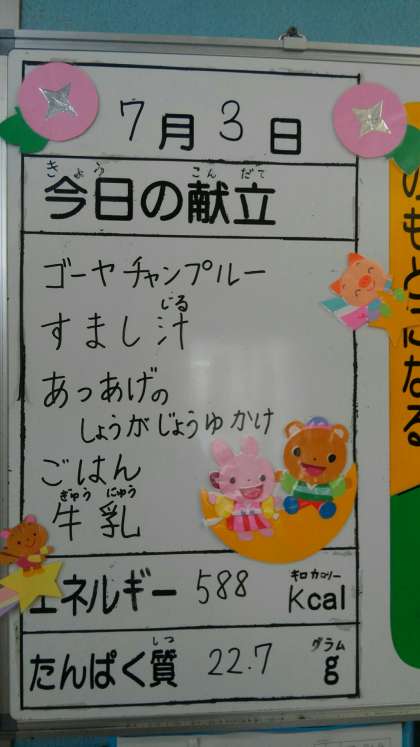 7月3日
きょう こんだて
今日の献立
ゴーヤチャンプルー
じる
すまし汁
あつあげの
しょうがじょうゆかけ
ごはん
ぎゅう にゅう
牛乳
キロカロリー
エネルギー 588 kcal
しつ グラム
たんぱく質 22.7 g
のもとになる